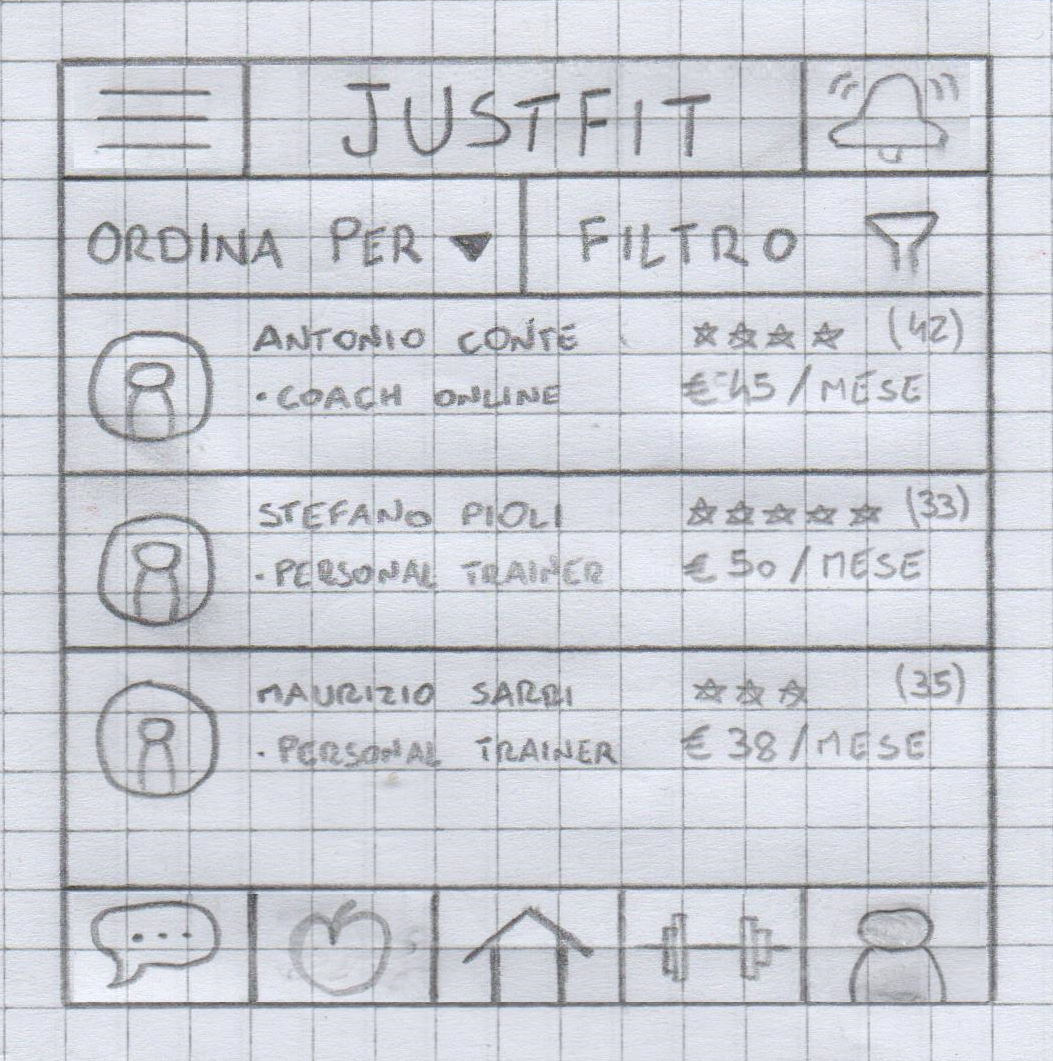 JUSTFIT
ORDINA PER FILTRO
ANTONIO CONTE (42)
• COACH ONLINE € 45 / MESE
STEFANO PIOLI (33)
• PERSONAL TRAINER € 50 / MESE
MAURIZIO SARRI (35)
• PERSONAL TRAINER € 38 / MESE